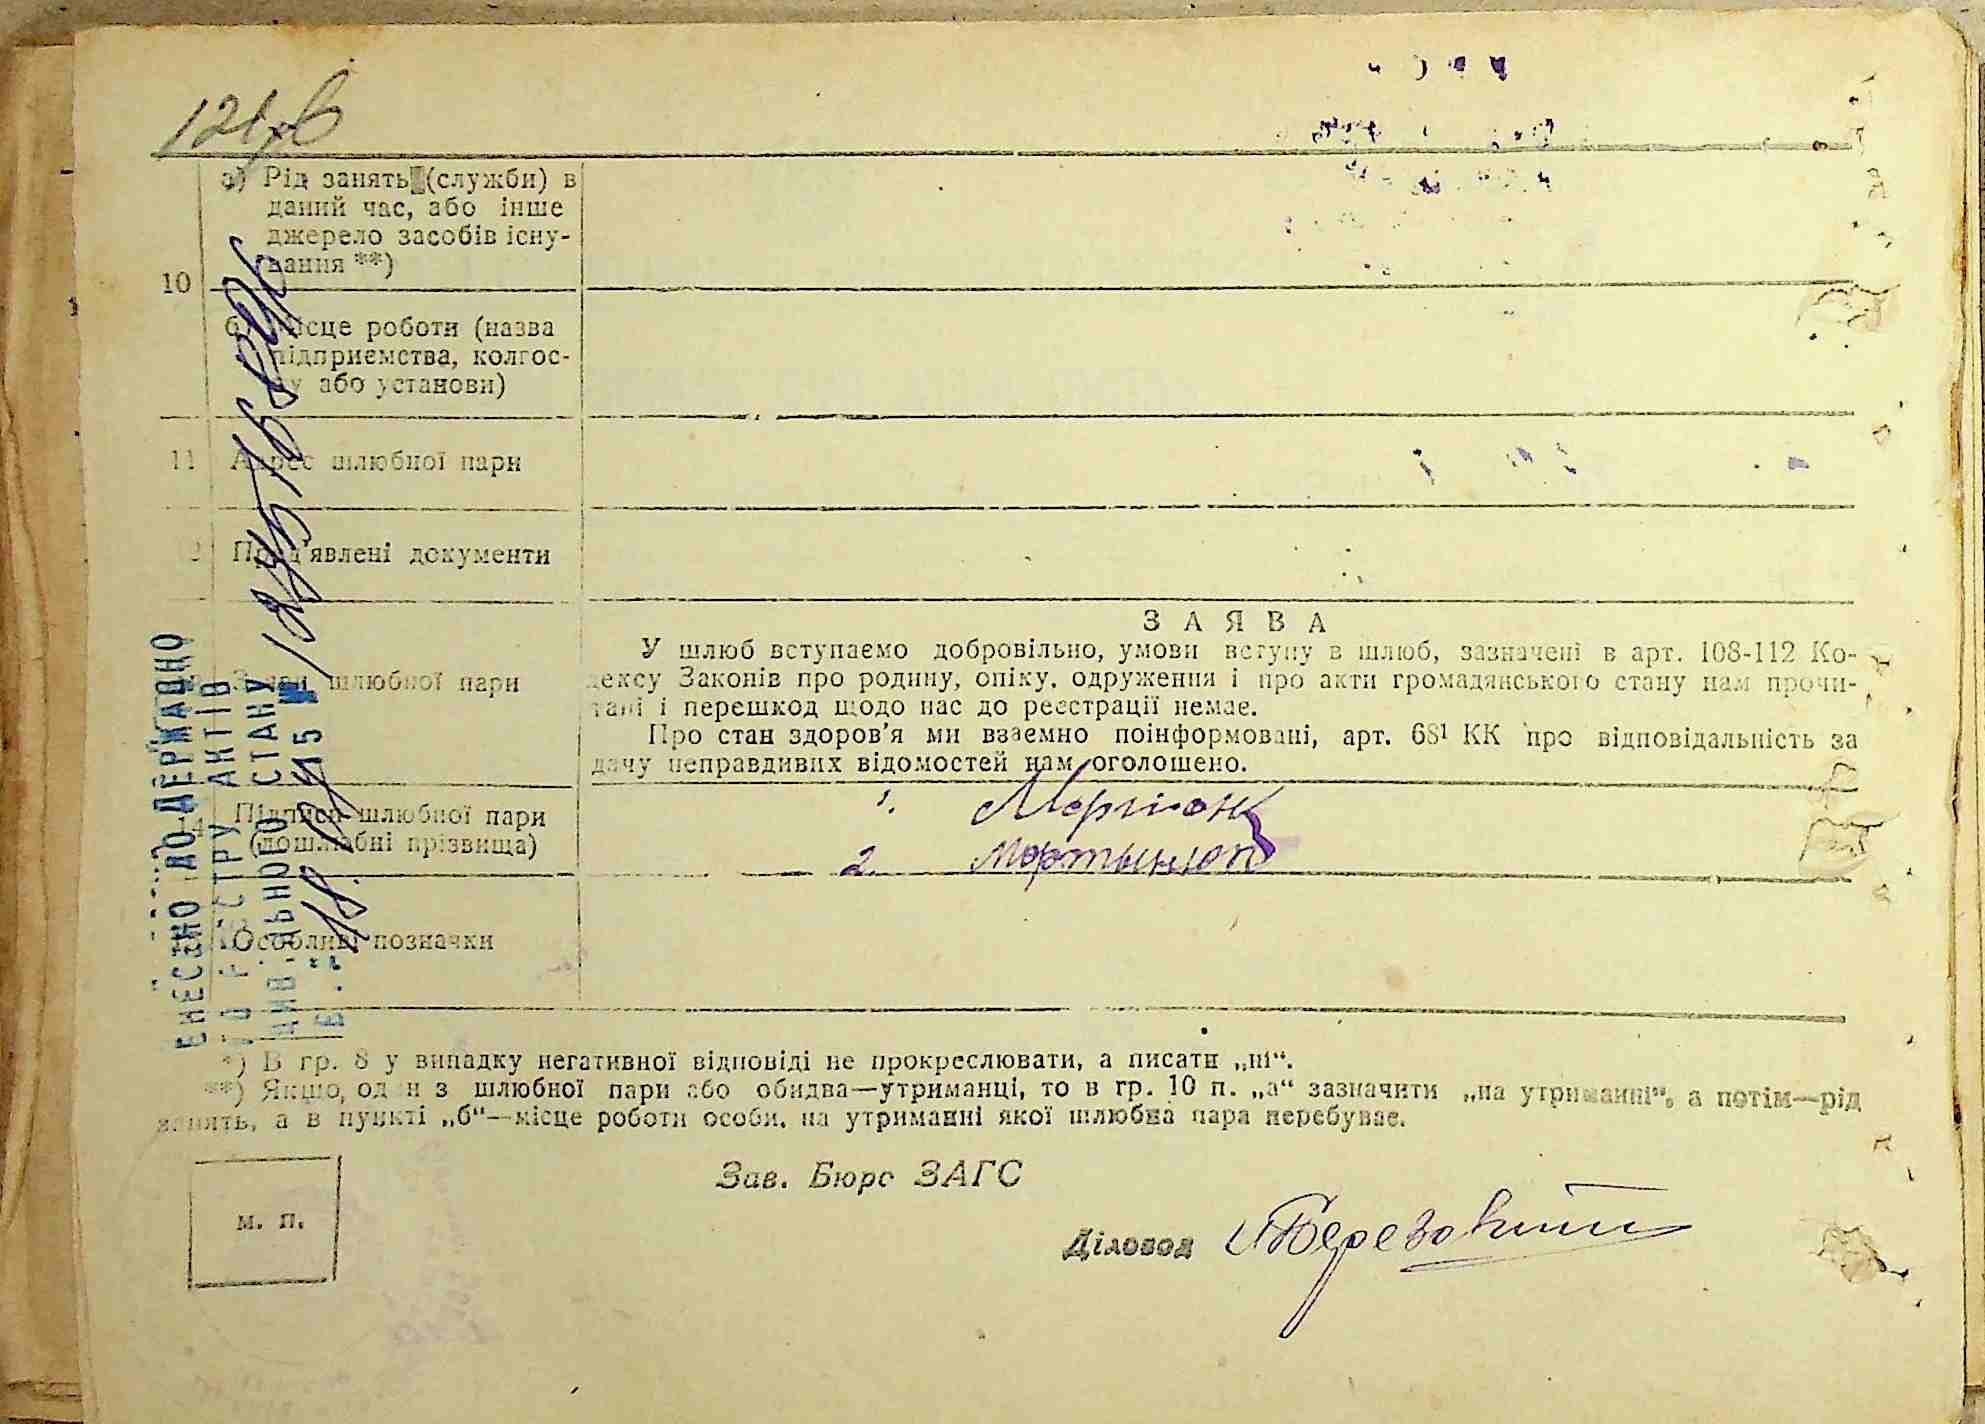 а) Рід занять (служби) в
даний час, або інше
джерело засобів існу-
вання **)
10
б) Місце роботи (назва
підприємства, колгос-
пу або установи)
11 Адрес шлюбної пари
12 Пред'явлені документи
ЗАЯВА
Заяви шлюбної пари
У шлюб вступаємо добровільно, умови вступу в шлюб, зазначені в арт. 108-112 Ко-
дексу Законів про родину, опіку, одруження і про акти громадянського стану нам прочи-
тані і перешкод щодо нас до реєстрації немає.
Про стан здоров'я ми взаємно поінформовані, арт. 68¹ КК про відповідальність за
дачу неправдивих відомостей нам оголошено.
14 Підписи шлюбної пари
(дошлюбні прізвища)
1.
2. Мартынюк
Особливі позначки
ВНЕСЕНО ДО ДЕРЖАВНО
ГО РЕЄСТРУ АКТІВ
ЦИВІЛЬНОГО СТАНУ
*) В гр. 8 у випадку негативної відповіді не прокреслювати, а писати „ні“.
**) Якщо, один з шлюбної пари або обидва—утриманці, то в гр. 10 п. „а“ зазначити „на утриманні“, а потім—рід
занять, а в пункті „б“—місце роботи особи, на утриманні якої шлюбна пара перебуває.
Зав. Бюро ЗАГС
м. п.
Діловод Березовський